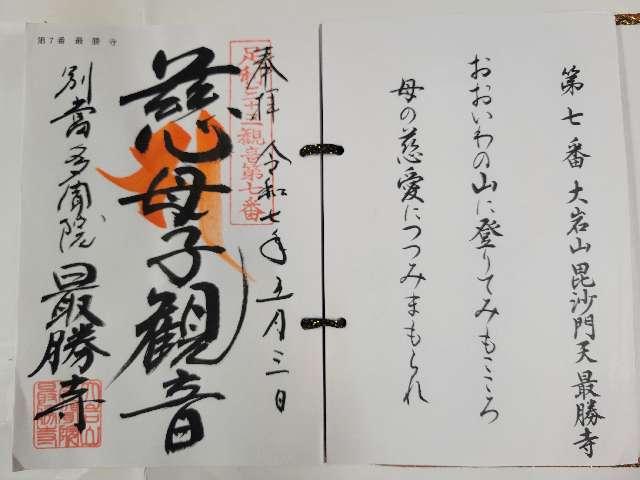 第七番 大岩山 毘沙門天 最勝寺
おおいわの山に登りてみもこころ
母の慈愛につつみまもられ
奉拝 令和七年五月三日
足利三十三観音第七番
慈母子観音
別當多聞院 最勝寺
第7番 最勝寺